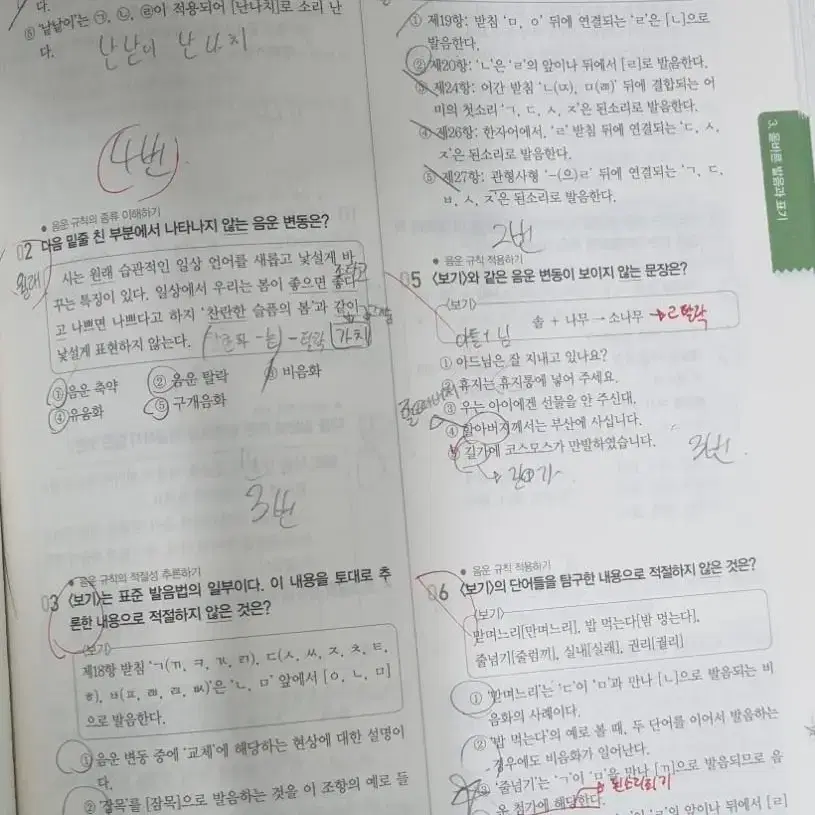 다.
⑤ '낱낱이'는 ㉠, ㉡, ㉣이 적용되어 [난나치]로 소리 난
다.
난난이 난나치
4번
• 음운 규칙의 종류 이해하기
02 다음 밑줄 친 부분에서 나타나지 않는 음운 변동은?
시는 원래 습관적인 일상 언어를 새롭고 낯설게 바
꾸는 특징이 있다. 일상에서 우리는 봄이 좋으면 좋다
고 나쁘면 나쁘다고 하지 '찬란한 슬픔의 봄'과 같이
낯설게 표현하지 않는다.
월래
조타고
탈락
가치
① 음운 축약
② 음운 탈락
③ 비음화
④ 유음화
⑤ 구개음화
3번
• 음운 규칙의 적절성 추론하기
03 〈보기〉는 표준 발음법의 일부이다. 이 내용을 토대로 추
론한 내용으로 적절하지 않은 것은?
〈보기〉
제18항 받침 'ㄱ(ㄲ, ㅋ, ㄳ, ㄺ), ㄷ(ㅅ, ㅆ, ㅈ, ㅊ, ㅌ,
ㅎ), ㅂ(ㅍ, ㄼ, ㄿ, ㅄ)'은 'ㄴ, ㅁ' 앞에서 [ㅇ, ㄴ, ㅁ]
으로 발음한다.
① 음운 변동 중에 '교체'에 해당하는 현상에 대한 설명이
다.
② '잡목'를 [잠목]으로 발음하는 것을 이 조항의 예로 들
① 제19항: 받침 'ㅁ, ㅇ' 뒤에 연결되는 'ㄹ'은 [ㄴ]으로
발음한다.
② 제20항: 'ㄴ'은 'ㄹ'의 앞이나 뒤에서 [ㄹ]로 발음한다.
③ 제24항: 어간 받침 'ㄴ(ㄵ), ㅁ(ㄻ)' 뒤에 결합되는 어
미의 첫소리 'ㄱ, ㄷ, ㅅ, ㅈ'은 된소리로 발음한다.
④ 제26항: 한자어에서, 'ㄹ' 받침 뒤에 연결되는 'ㄷ, ㅅ,
ㅈ'은 된소리로 발음한다.
⑤ 제27항: 관형사형 '-(으)ㄹ' 뒤에 연결되는 'ㄱ, ㄷ,
ㅂ, ㅅ, ㅈ'은 된소리로 발음한다.
2번
• 음운 규칙 적용하기
05 〈보기〉와 같은 음운 변동이 보이지 않는 문장은?
〈보기〉
솔 + 나무 → 소나무 → ㄹ탈락
아들+님
① 아드님은 잘 지내고 있나요?
② 휴지는 휴지통에 넣어 주세요.
③ 우는 아이에겐 선물을 안 주신대.
④ 할아버지께서는 부산에 사십니다.
⑤ 길가에 코스모스가 만발하였습니다.
3번
• 음운 규칙 적용하기
06 〈보기〉의 단어들을 탐구한 내용으로 적절하지 않은 것은?
〈보기〉
맏며느리[만며느리], 밥 먹는다[밤 멍는다],
줄넘기[줄럼끼], 실내[실래], 권리[궐리]
① '맏며느리'는 'ㄷ'이 'ㅁ'과 만나 [ㄴ]으로 발음되는 비
음화의 사례이다.
② '밥 먹는다'의 예로 볼 때, 두 단어를 이어서 발음하는
경우에도 비음화가 일어난다.
③ '줄넘기'는 'ㄱ'이 'ㅁ'을 만나 [ㄲ]으로 발음되므로 음
운 첨가에 해당한다. → 된소리되기
'ㄹ'의 앞이나 뒤에서 [ㄹ]
3. 올바른 발음과 표기